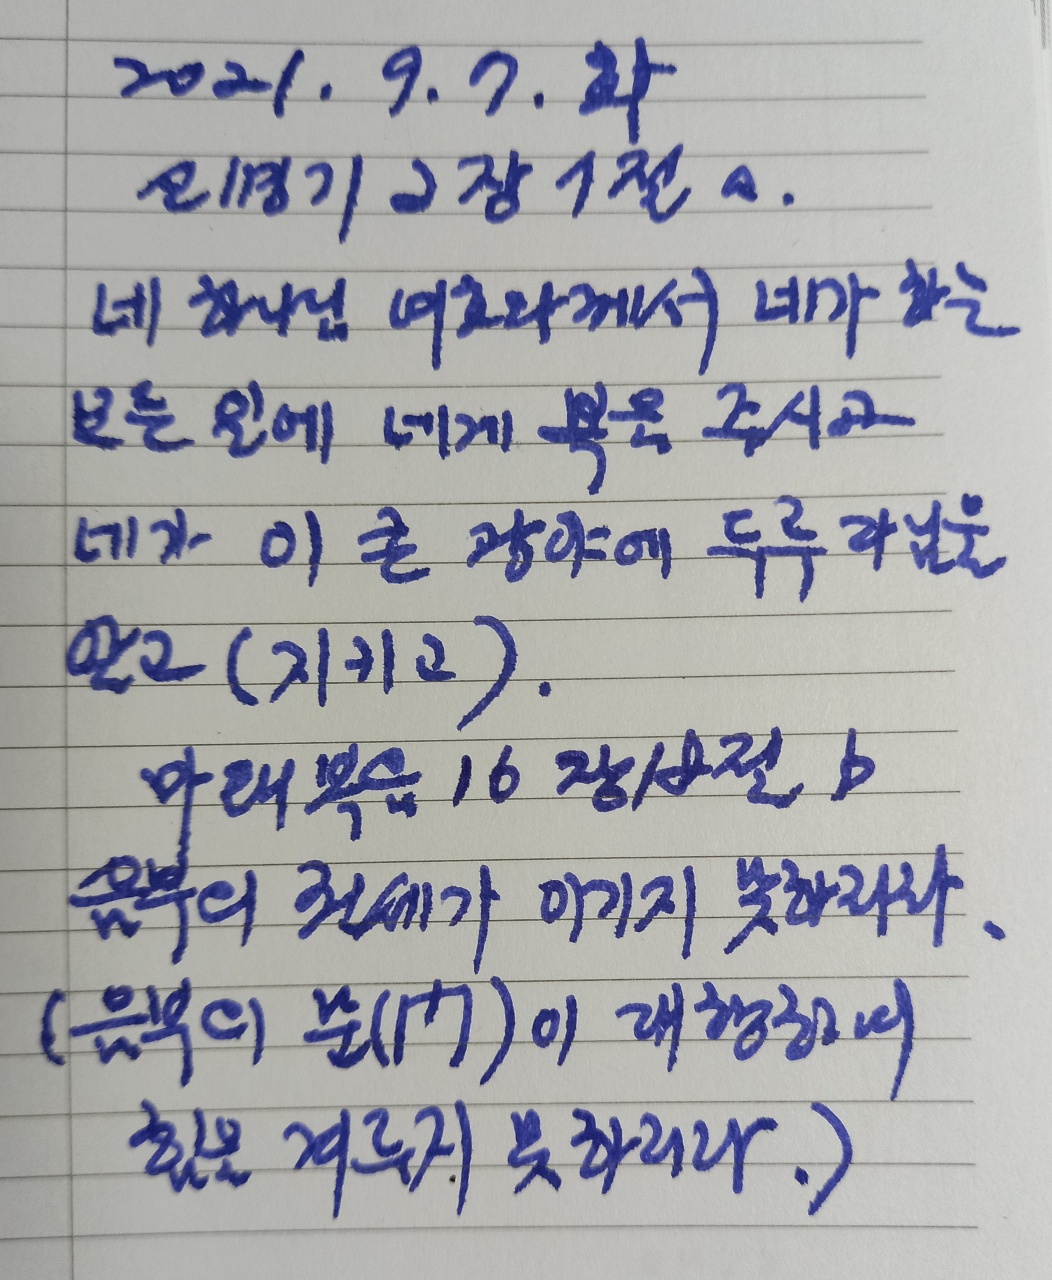 2021. 9. 7. 화
신명기 2장 7절 a.
네 하나님 여호와께서 네가 하는
모든 일에 네게 복을 주시고
네가 이 큰 광야에 두루 다님을
알고 (지키고).
마태복음 16장 18절 b
음부의 권세가 이기지 못하리라.
(음부의 문(門)이 대항하여
힘을 겨루지 못하리라.)